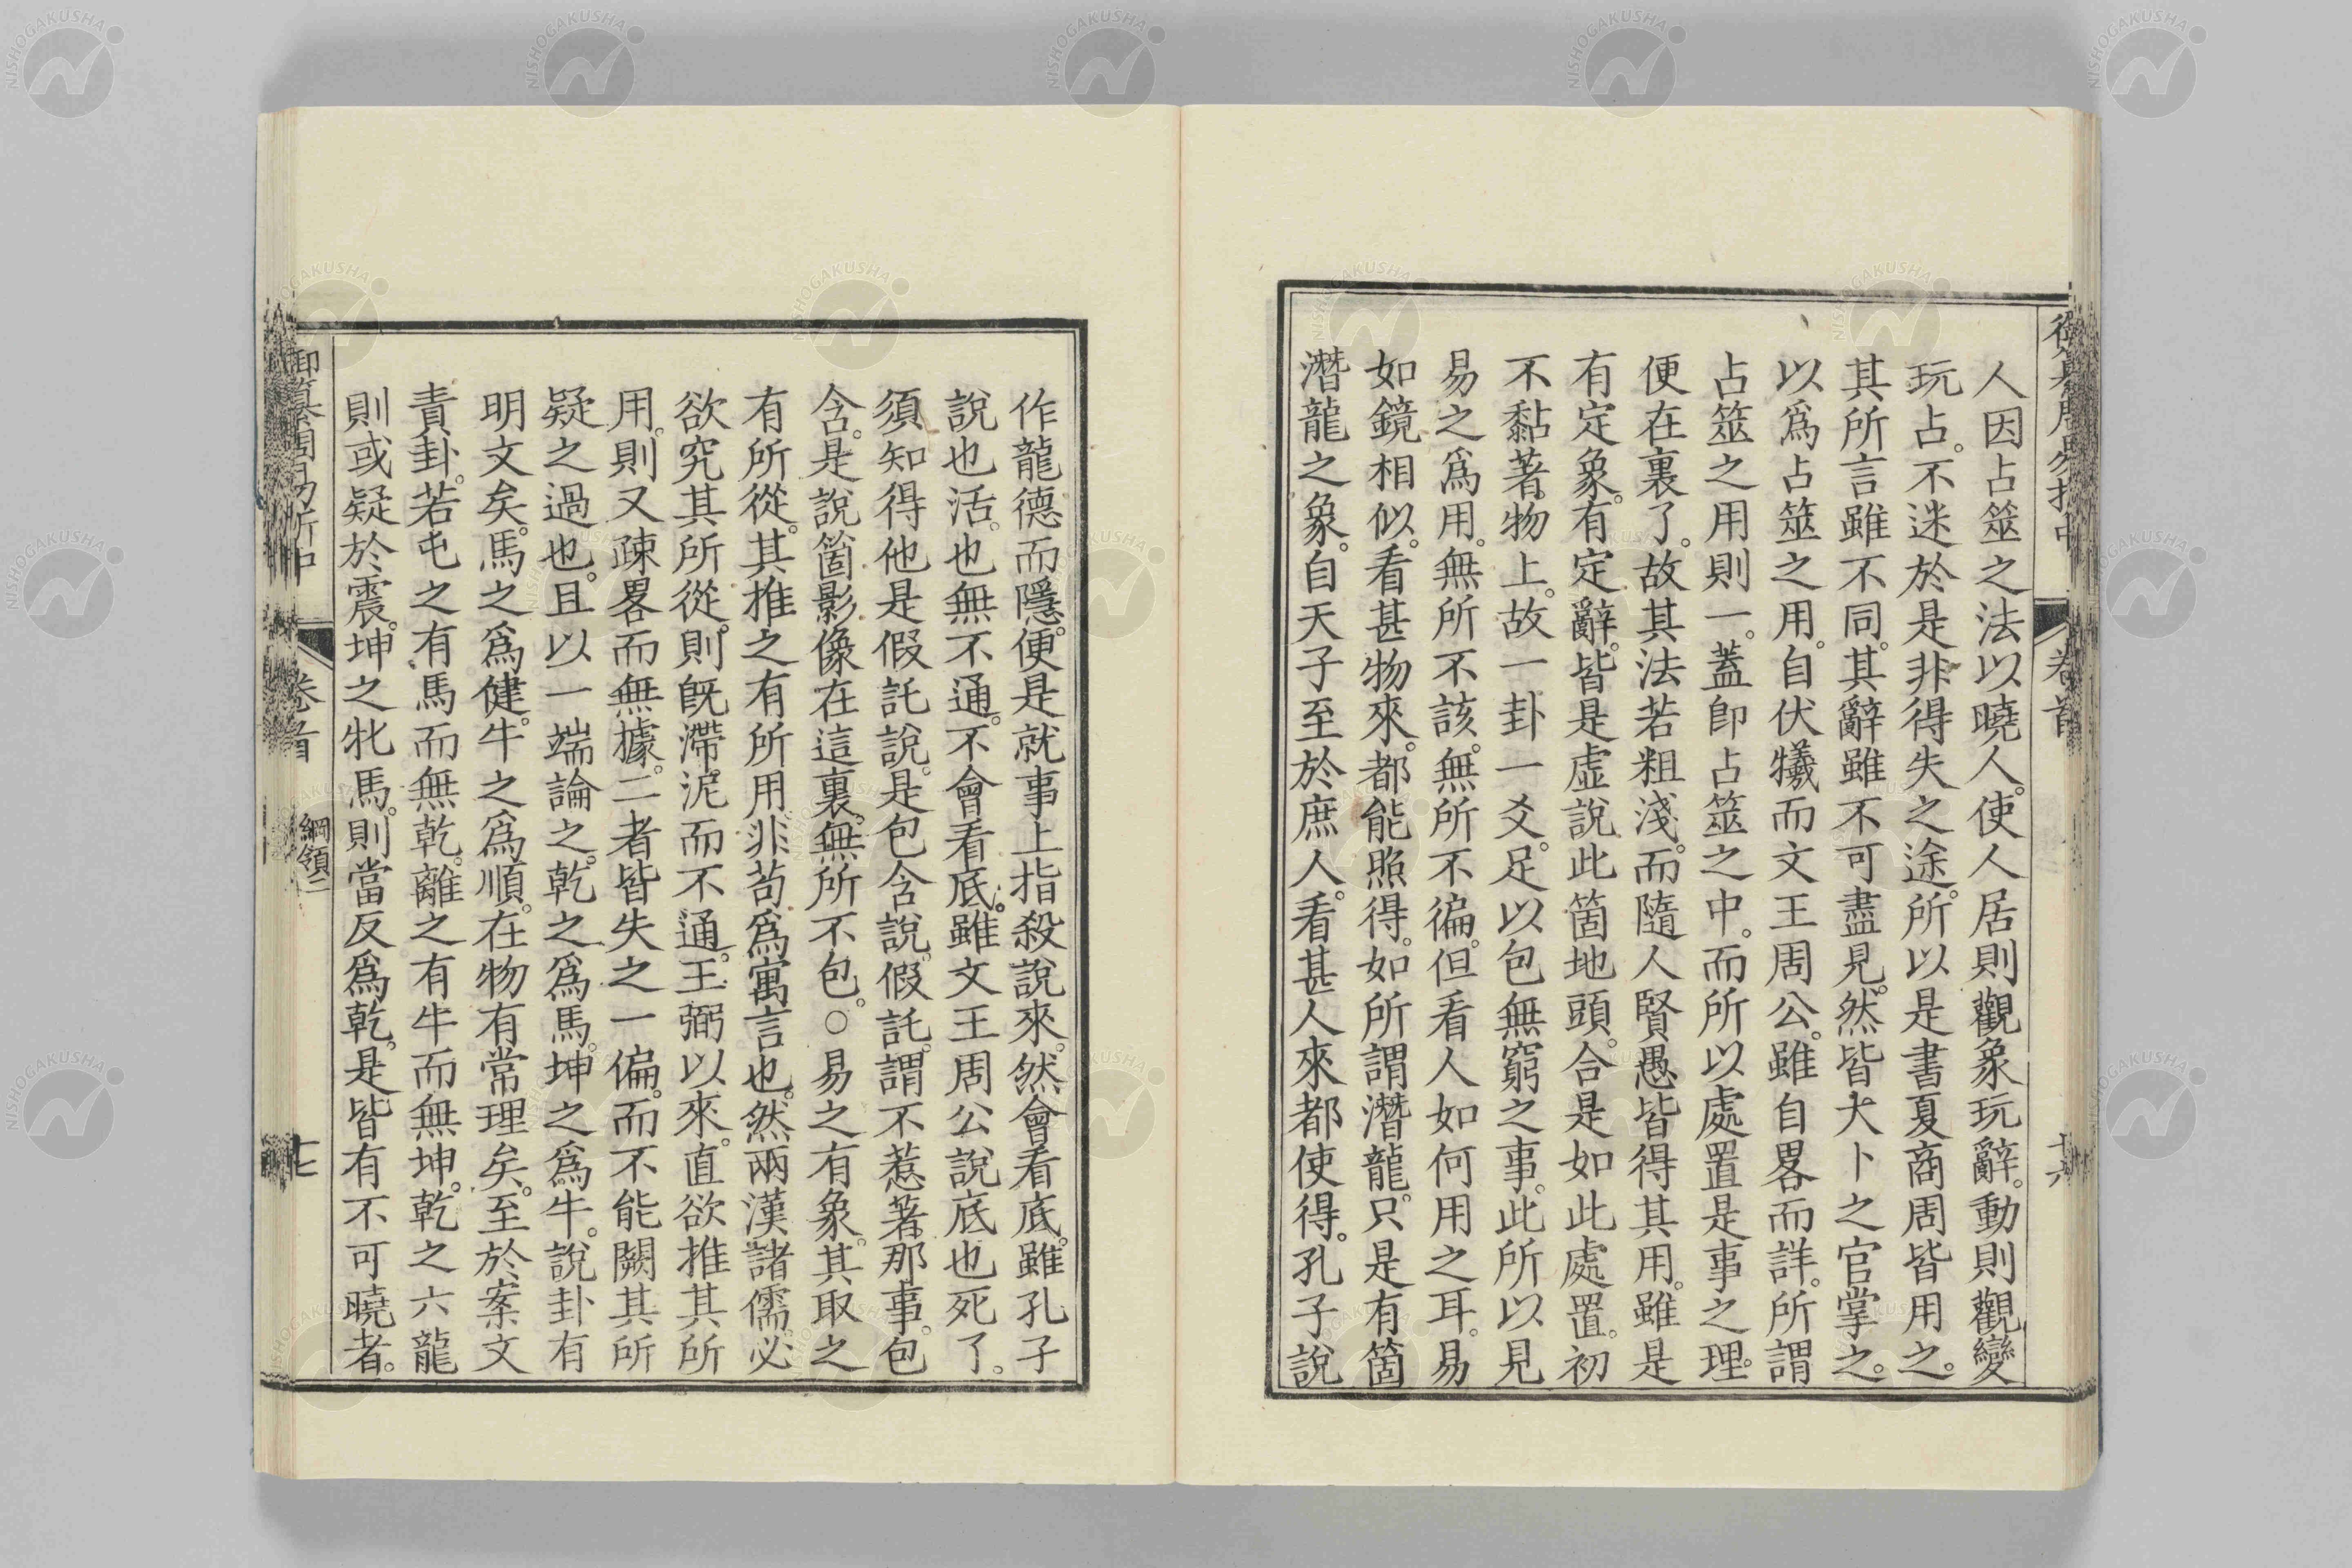 人因占筮之法以曉人。使人居則觀象玩辭。動則觀變
玩占。不迷於是非得失之途。所以是書夏商周皆用之。
其所言雖不同。其辭雖不可盡見。然皆大卜之官掌之。
以爲占筮之用。自伏犧而文王周公。雖自畧而詳。所謂
占筮之用則一。蓋卽占筮之中。而所以處置是事之理。
便在裏了。故其法若粗淺。而隨人賢愚皆得其用。雖是
有定象。有定辭。皆是虛說此箇地頭。合是如此處置。初
不黏著物上。故一卦一爻。足以包無窮之事。此所以見
易之爲用。無所不該。無所不徧。但看人如何用之耳。易
如鏡相似。看甚物來。都能照得。如所謂潛龍。只是有箇
潛龍之象。自天子至於庶人。看甚人來都使得。孔子說
作龍德而隱。便是就事上指殺說來。然會看底。雖孔子
說也活。也無不通。不會看底。雖文王周公說底也死了。
須知得他是假託說。是包含說。假託。謂不惹著那事。包
含。是說箇影像在這裏。無所不包。○易之有象。其取之
有所從。其推之有所用。非苟爲寓言也。然兩漢諸儒。必
欲究其所從。則旣滯泥而不通。王弼以來。直欲推其所
用。則又疎畧而無據。二者皆失之一偏。而不能闕其所
疑之過也。且以一端論之。乾之爲馬。坤之爲牛。說卦有
明文矣。馬之爲健。牛之爲順。在物有常理矣。至於案文
責卦。若屯之有馬而無乾。離之有牛而無坤。乾之六龍
則或疑於震。坤之牝馬。則當反爲乾。是皆有不可曉者。
御纂周易折中
卷首
綱領二
十七
卷首
十六
NISHOGAKUSHA